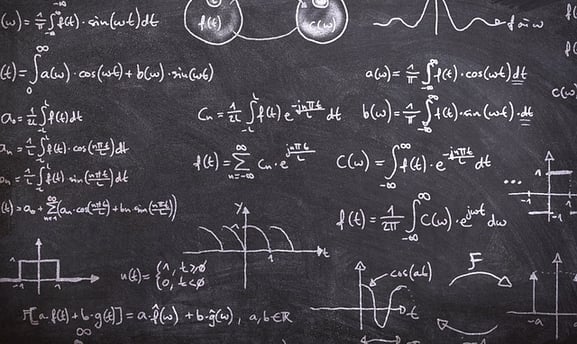 (ω) = 1/π ∫_{-∞}^{∞} f(t) · sin(ωt) dt
f(t)
c(ω)
(t) = ∫_0^∞ a(ω) · cos(ωt) + b(ω) · sin(ωt)
a(ω) = 1/π ∫_{-∞}^{∞} f(t) · cos(ωt) dt
c(ω
a_0 = 1/2L ∫_{-L}^{L} f(t) dt
C_n = 1/2L ∫_{-L}^{L} f(t) e^{-jnπt/L} dt
b(ω) = 1/π ∫_{-∞}^{∞} f(t) · sin(ωt) · dt
a_n = 1/L ∫_{-L}^{L} f(t) · cos(nπt/L) dt
f(t) = Σ_{n=-∞}^{∞} C_n · e^{jnπt/L}
b_n = 1/L ∫_{-L}^{L} f(t) sin(nπt/L) dt
...
(t) = a_0 + Σ_{n=1}^{∞} (a_n · cos(nπt/L) + b_n sin(nπt/L))
f(t) = 1/2π ∫_{-∞}^{∞} C(ω) · e^{jωt} dω
y
1
t
u(t) = {1, t≥0
0, t<0
cos(
F
t
1
F[a · f(t) + b · g(t)] = a · f̂(ω) + b · ĝ(ω), a, b ∈ ℝ
-a
a
∞